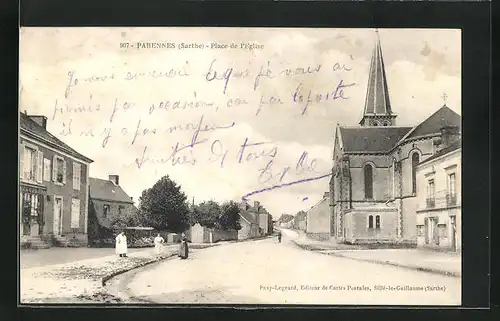 907 - PARENNES (Sarthe) - Place de l'Église
Je vous envoie l'Église que je vous ai
promis par occasion, car par la poste
il n'y a pas moyen
Amitiés à tous
Pavy-Legeard, Editeur de Cartes Postales, Sillé-le-Guillaume (Sarthe)